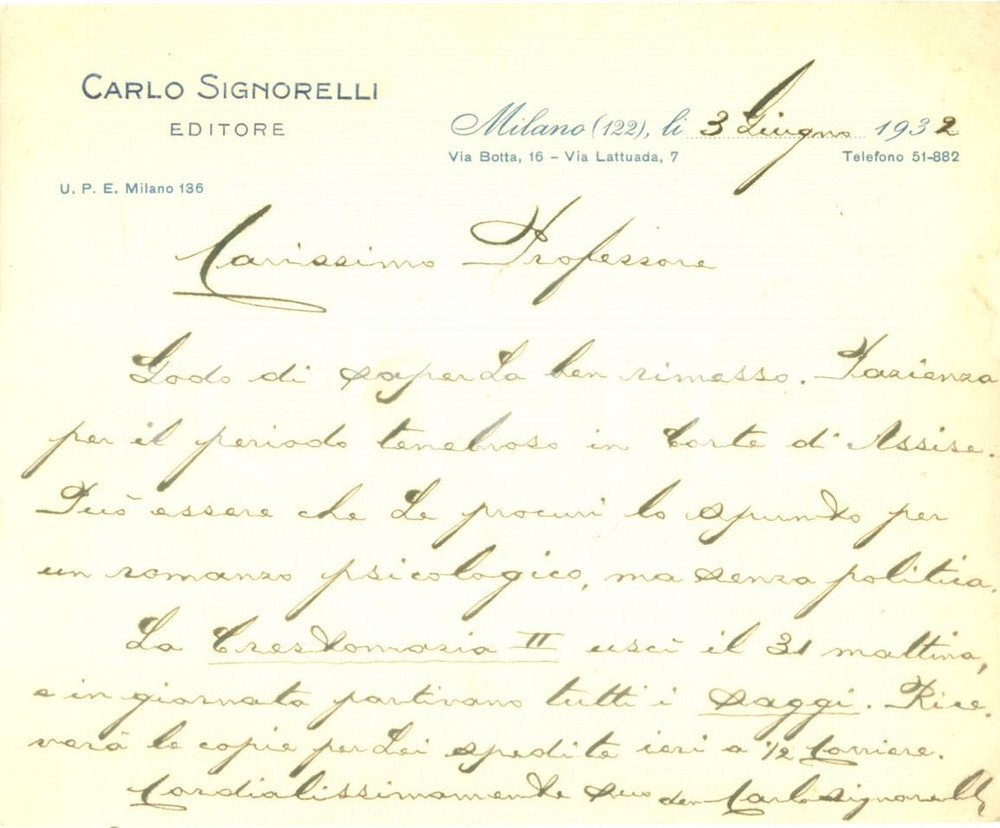 CARLO SIGNORELLI
EDITORE
Milano (122), li 3 Giugno 1932
Via Botta, 16 – Via Lattuada, 7 Telefono 51-882
U. P. E. Milano 136
Carissimo Professore
Godo di saperLa ben rimesso. Pazienza
per il periodo tenebroso in Corte d'Assise.
Può essere che Le procuri lo spunto per
un romanzo psicologico, ma senza politica.
La Crestomazia II uscì il 31 mattina,
e in giornata partivano tutti i saggi. Rice-
verà le copie per Lei spedite ieri a ½ Corriere.
Cordialissimamente Suo Carlo Signorelli